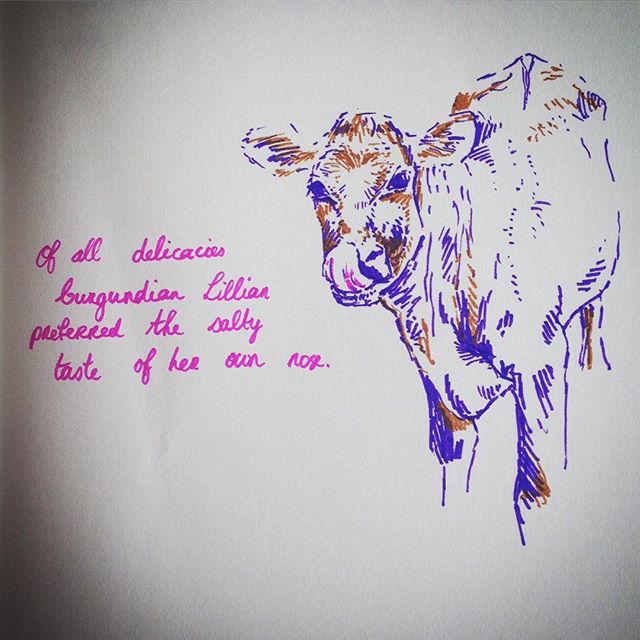 Of all delicacies
burgundian Lillian
preferred the salty
taste of her own nose.